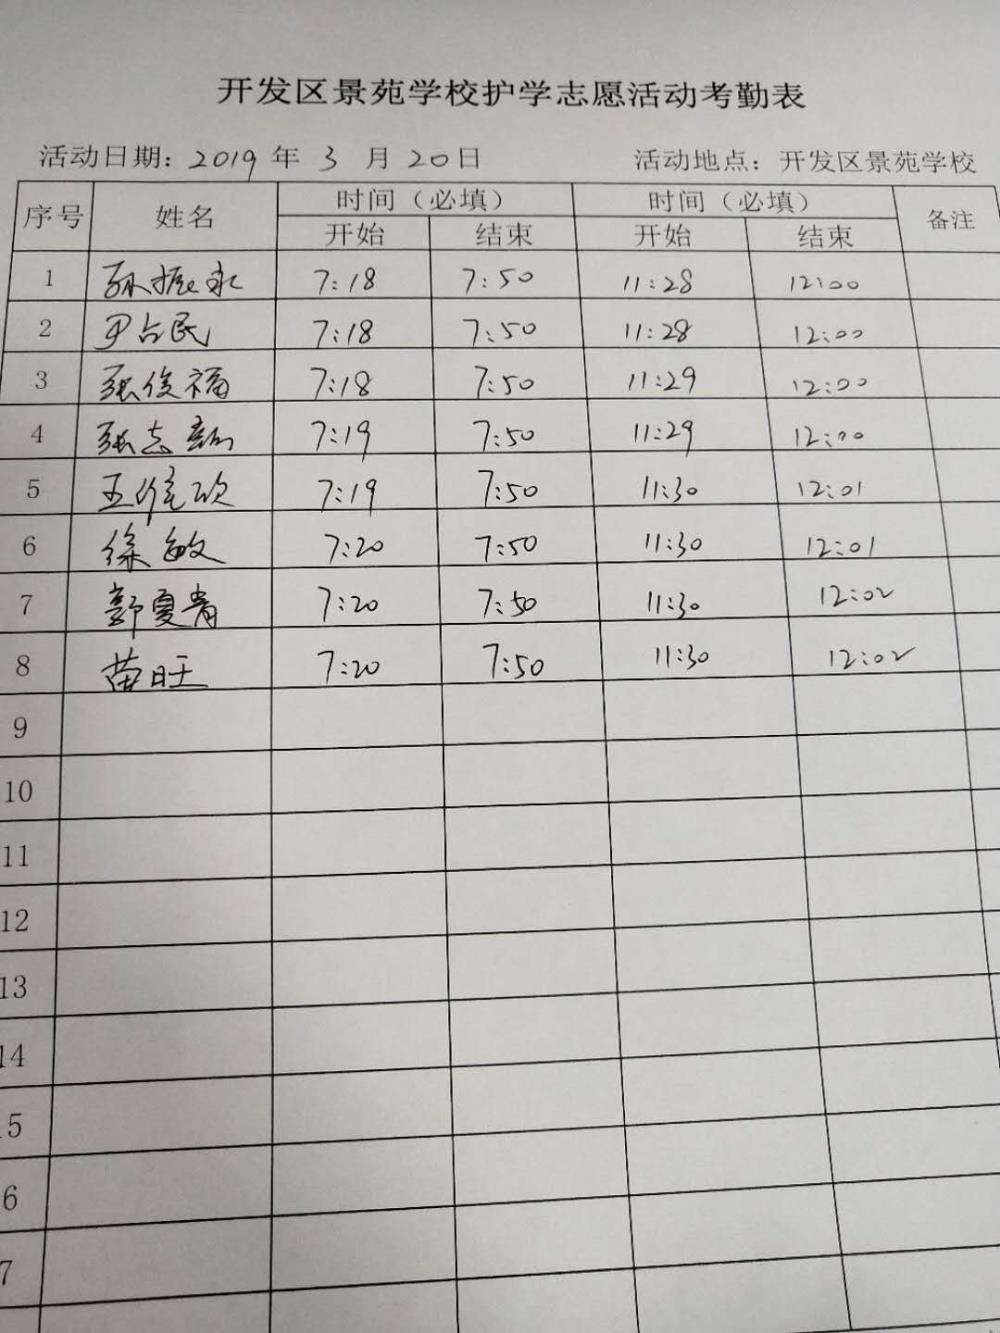 开发区景苑学校护学志愿活动考勤表
活动日期: 2019 年 3 月 20日 活动地点: 开发区景苑学校
序号 姓名 时间（必填） 时间（必填） 备注
开始 结束 开始 结束
1 孙振永 7:18 7:50 11:28 12:00
2 尹占民 7:18 7:50 11:28 12:00
3 张俊福 7:18 7:50 11:29 12:00
4 张志 7:19 7:50 11:29 12:00
5 王 7:19 7:50 11:30 12:01
6 徐敏 7:20 7:50 11:30 12:01
7 郭夏青 7:20 7:50 11:30 12:02
8 苗旺 7:20 7:50 11:30 12:02
9
10
11
12
13
14
15
6
7